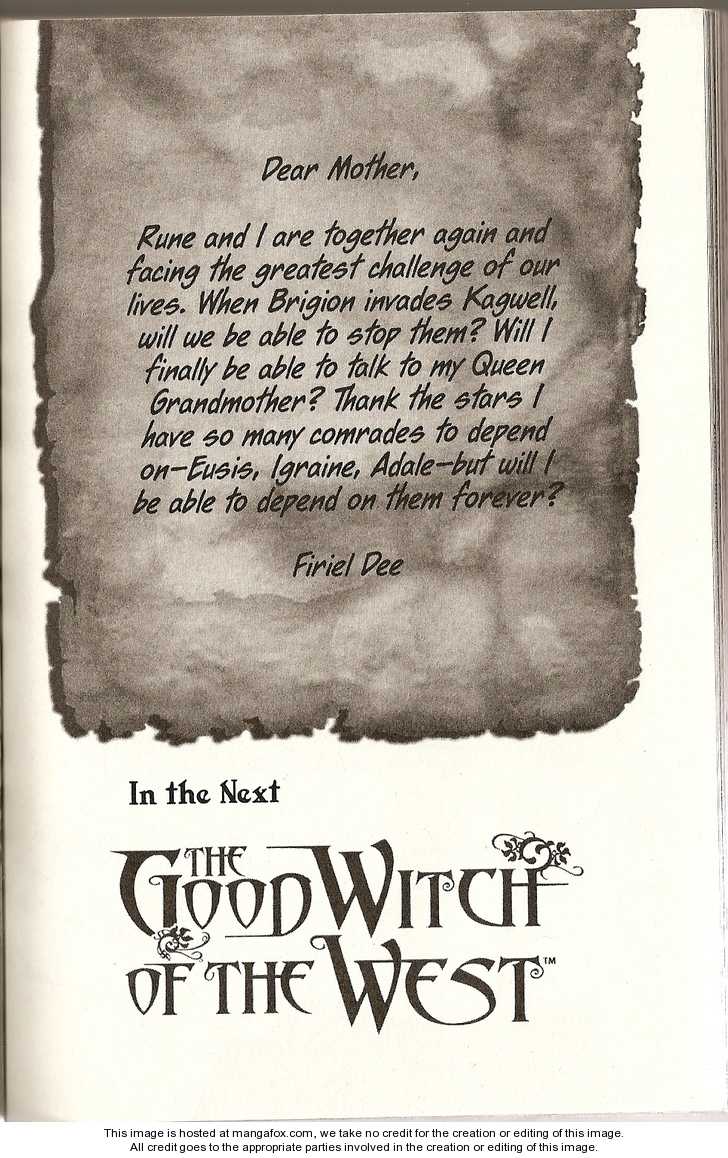 Dear Mother,
Rune and I are together again and
facing the greatest challenge of our
lives. When Brigion invades Kagwell,
will we be able to stop them? Will I
finally be able to talk to my Queen
Grandmother? Thank the stars I
have so many comrades to depend
on—Eusis, Igraine, Adale—but will I
be able to depend on them forever?
Firiel Dee
In the Next
THE
GOOD WITCH
OF THE WEST™
This image is hosted at mangafox.com, we take no credit for the creation or editing of this image.
All credit goes to the appropriate parties involved in the creation or editing of this image.